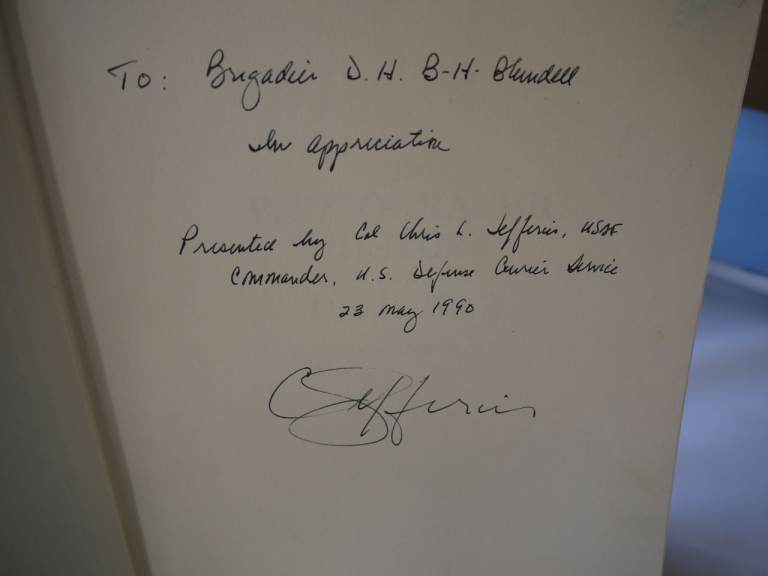 To: Brigadier D. H. B-H- Blundell
In appreciation
Presented by Col Chris L. Jefferies, USAF
Commander, U.S. Defense Courier Service
23 May 1990
CJefferies